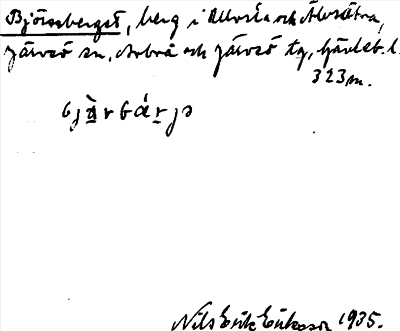 Björnsberget, berg i Ulvsta och Älvsätra,
Järvsö sn, Arbrå och Järvsö tg, Gävleb. l.
323 m.
bjὰ̱rbáṟjə
Nils Erik Eriksson 1935.